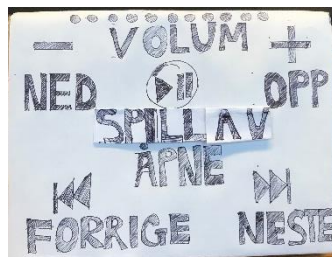 VOLUM
NED OPP
SPILL AV
ÅPNE
FORRIGE NESTE